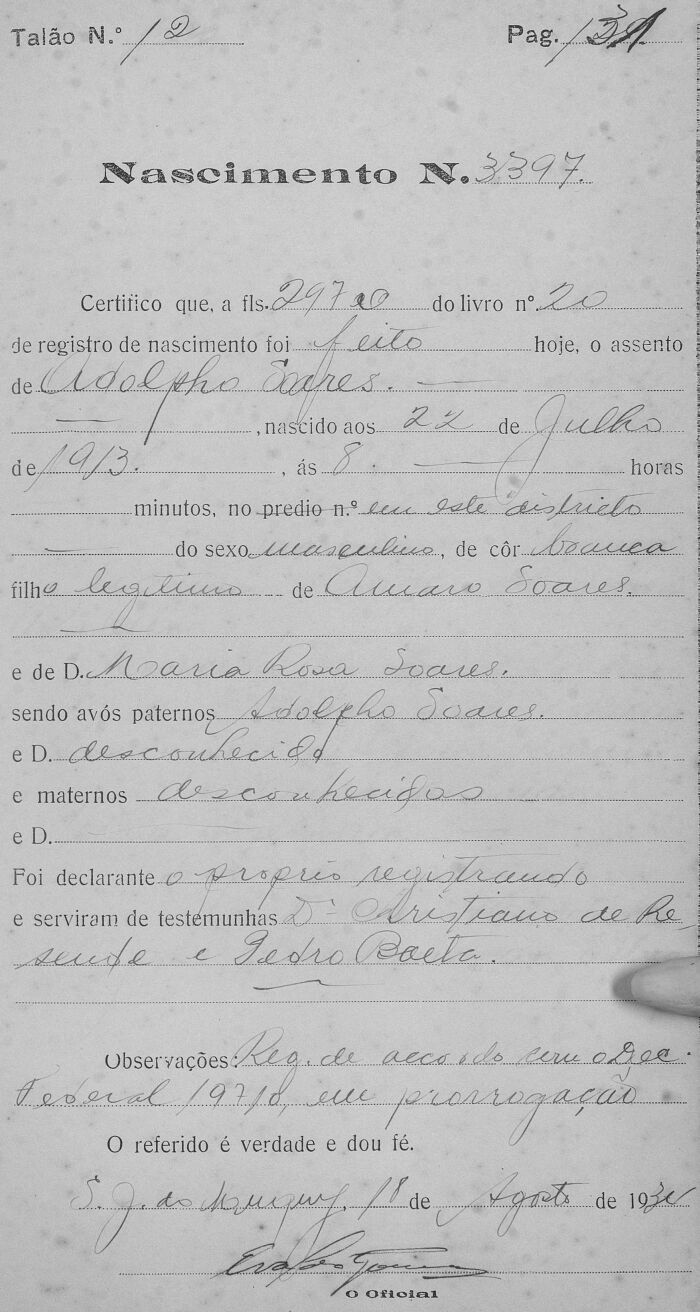 Talão N.º 12 Pag. 131
Nascimento N. 3397.
Certifico que, a fls. 297 do livro nº 20
de registro de nascimento foi feito hoje, o assento
de Adolpho Soares. —
— , nascido aos 22 de Julho
de 1913. , ás 8. — horas
minutos, no predio n.º em este districto
— do sexo masculino, de côr branca
filho legitimo de Amaro Soares.
—
e de D. Maria Rosa Soares.
sendo avós paternos Adolpho Soares.
e D. desconhecida
e maternos desconhecidos
e D.
Foi declarante o proprio registrando
e serviram de testemunhas Dr. Christiano de Re-
sende e Pedro Baeta.
Observações: Reg. de accordo com o Dec.
Federal 19710, em prorrogação
O referido é verdade e dou fé.
S. J. do 18 de Agosto de 193
O Official